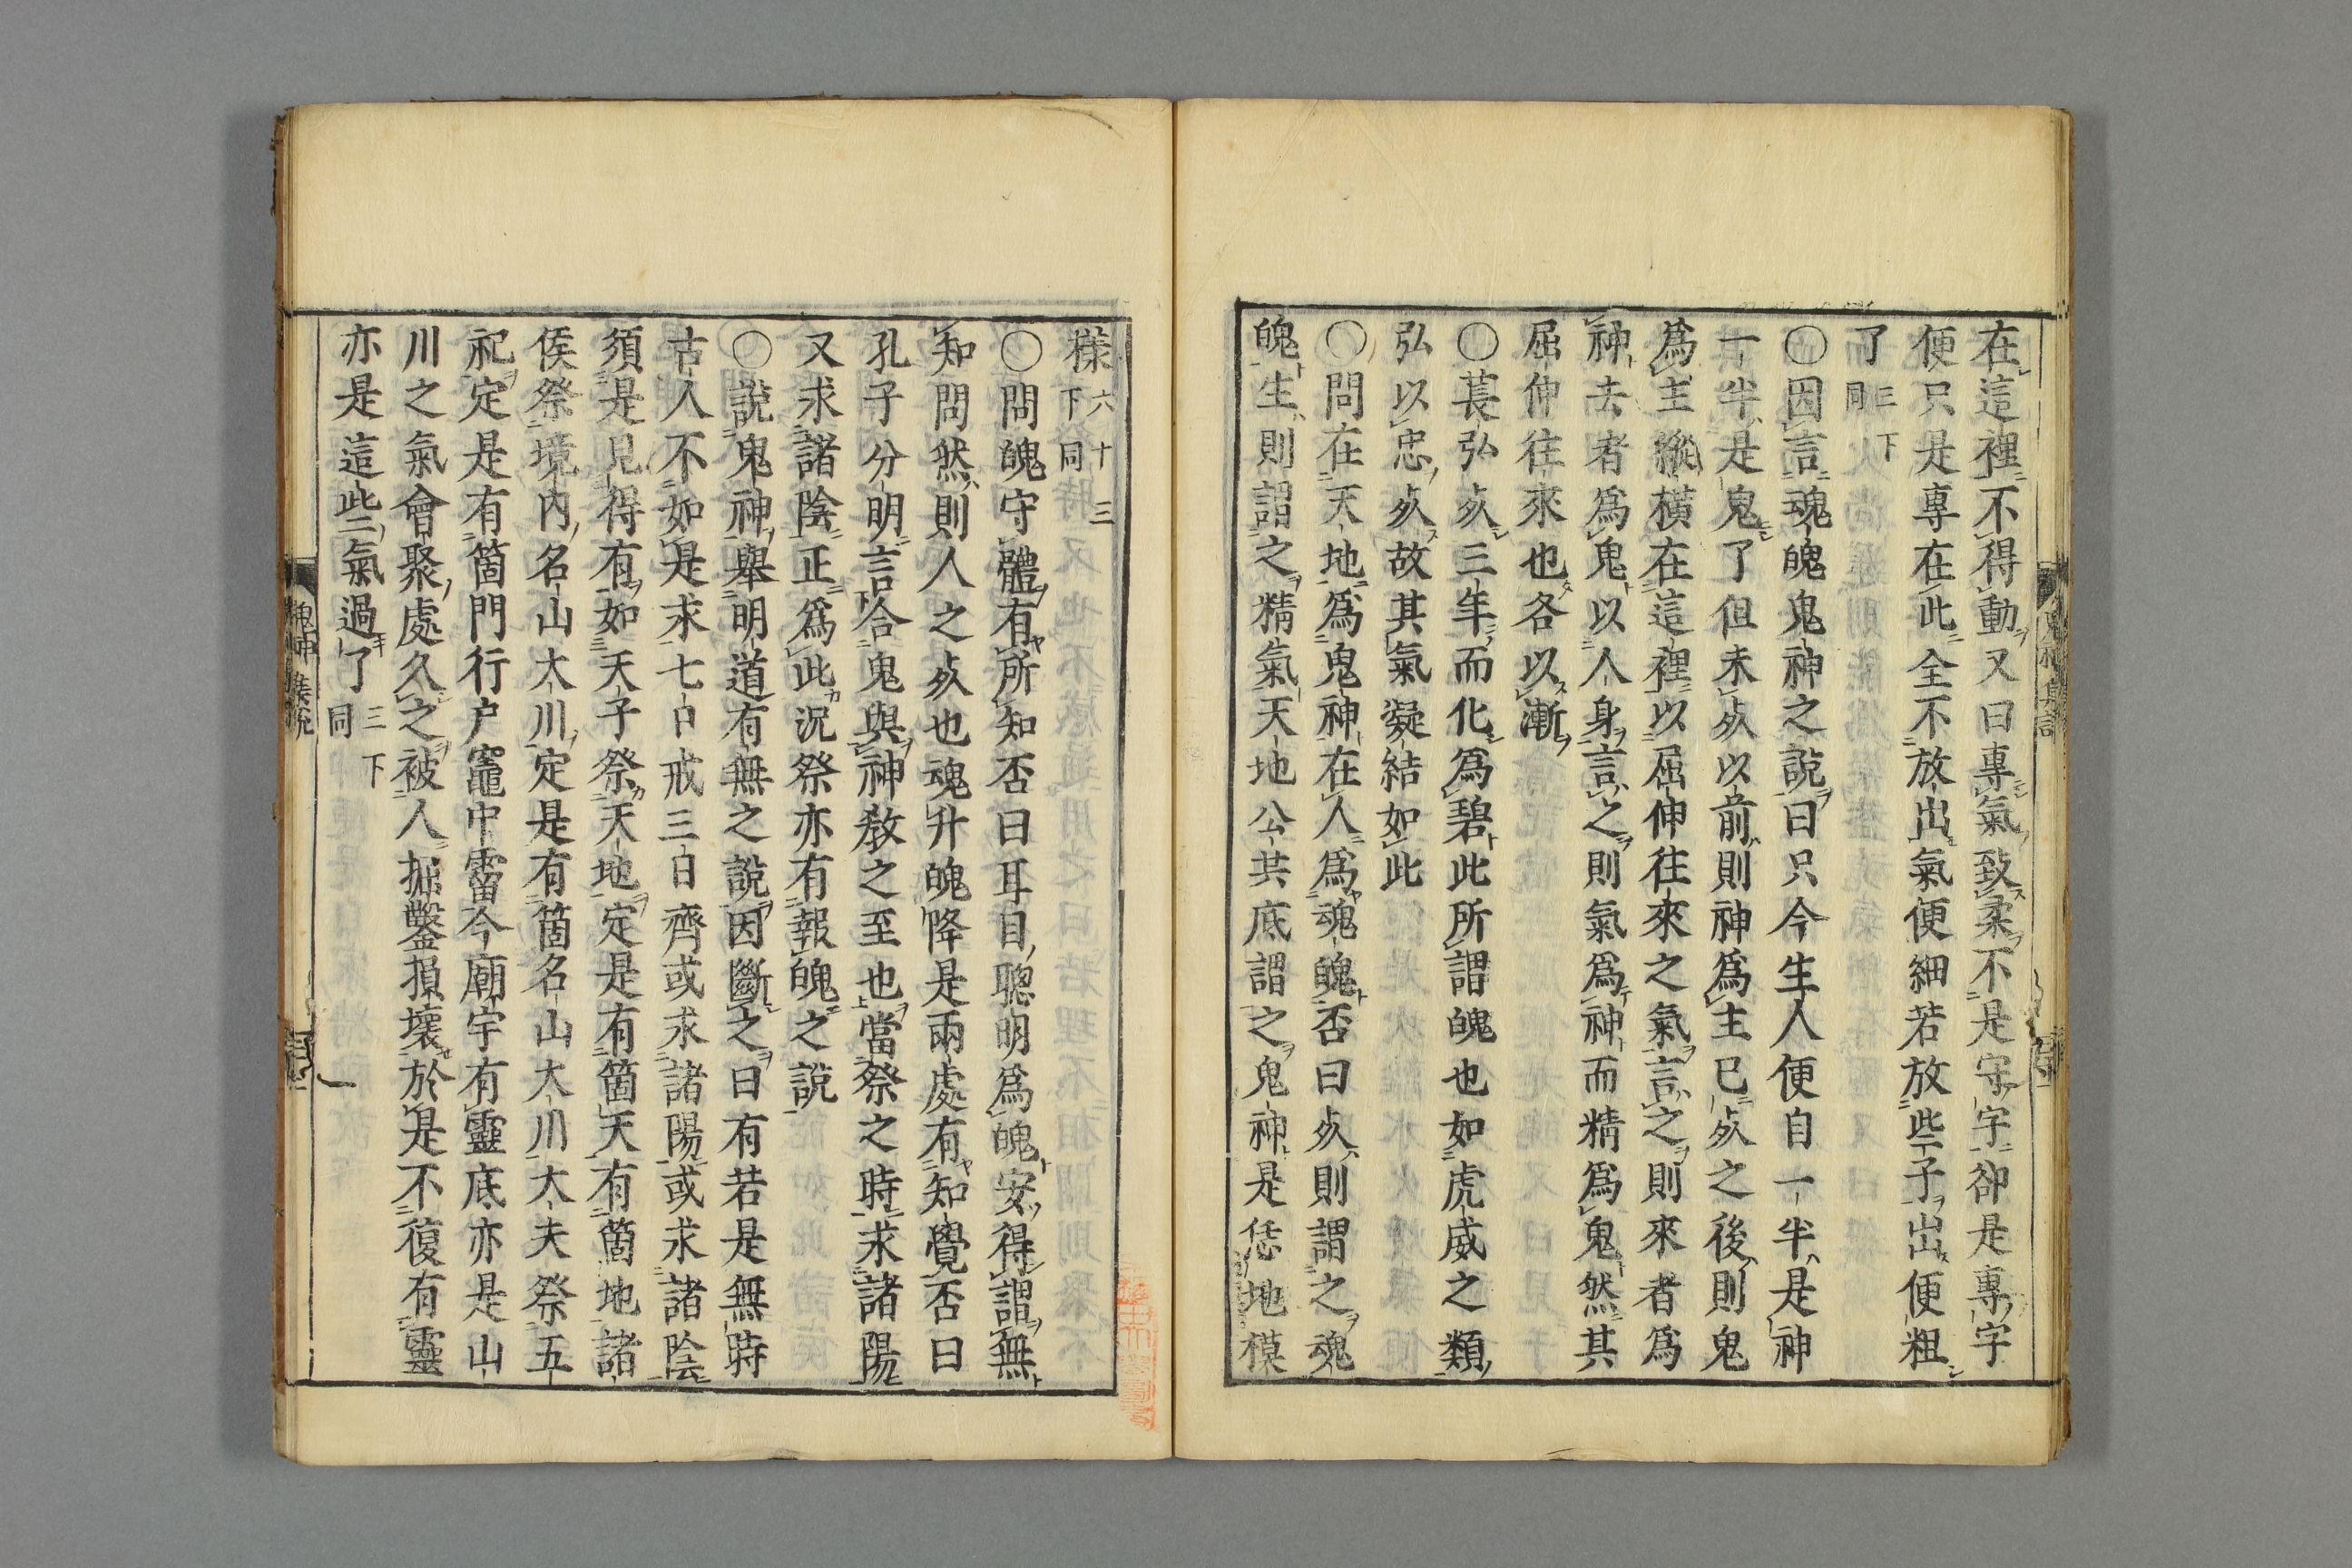 在這裡不得動又曰專氣致柔不是守字卻是專字
便只是專在此全不放出氣便細若放些子出便粗
了三下同
〇因言魂魄鬼神之說曰只今生人便自一半是神
一半是鬼了但未死以前則神爲主已死之後則鬼
爲主縱橫在這裡以屈伸往來之氣言之則來者爲
神去者爲鬼以人身言之則氣爲神而精爲鬼然其
屈伸往來也各以漸
〇萇弘死三年而化爲碧此所謂魄也如虎威之類
弘以忠死故其氣凝結如此
〇問在天地爲鬼神在人爲魂魄否曰死則謂之魂
魄生則謂之精氣天地公共底謂之鬼神是恁地模
樣六十三下同
〇問魄守體有所知否曰耳目聰明爲魄安得謂無
知問然則人之死也魂升魄降是兩處有知覺否曰
孔子分明言合鬼與神教之至也當祭之時求諸陽
又求諸陰正爲此況祭亦有報魄之說
〇說鬼神舉明道有無之說因斷之曰有若是無時
古人不如是求七日戒三日齊或求諸陽或求諸陰
須是見得有如天子祭天地定是有箇天有箇地諸
侯祭境內名山大川定是有箇名山大川大夫祭五
祀定是有箇門行户竈中霤今廟宇有靈底亦是山
川之氣會聚處久之被人掘鑿損壞於是不復有靈
亦是這些氣過了三下同
鬼神集說